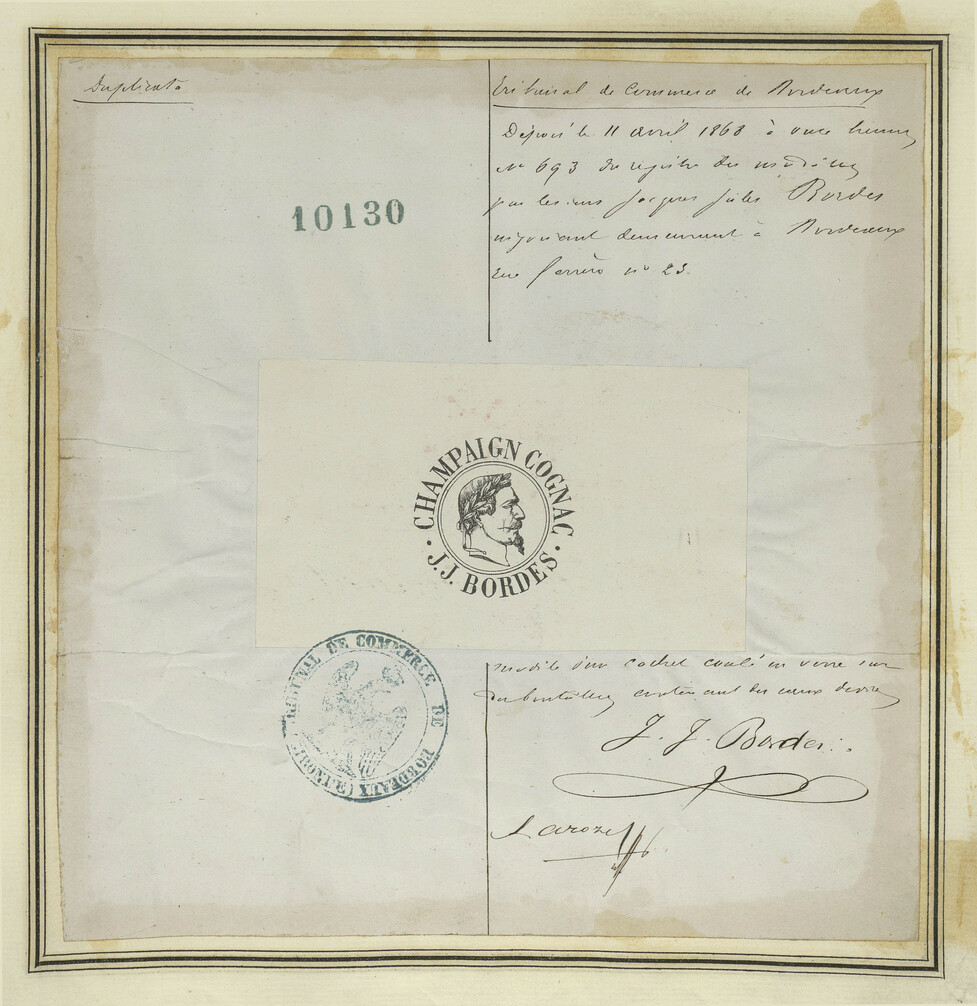 Duplicata
10130
Tribunal de Commerce de Bordeaux
Déposé le 11 avril 1868 à onze heures
N° 693 du registre des modèles
par le sieur Jacques Jules Bordes
négociant demeurant à Bordeaux
rue Ferrère n° 23.
CHAMPAIGN COGNAC
· J.J. BORDES ·
TRIBUNAL DE COMMERCE DE BORDEAUX (GIRONDE)
modèle d'un cachet coulé en verre sur
des bouteilles contenant des eaux de vie
J. J. Bordes
Laroze